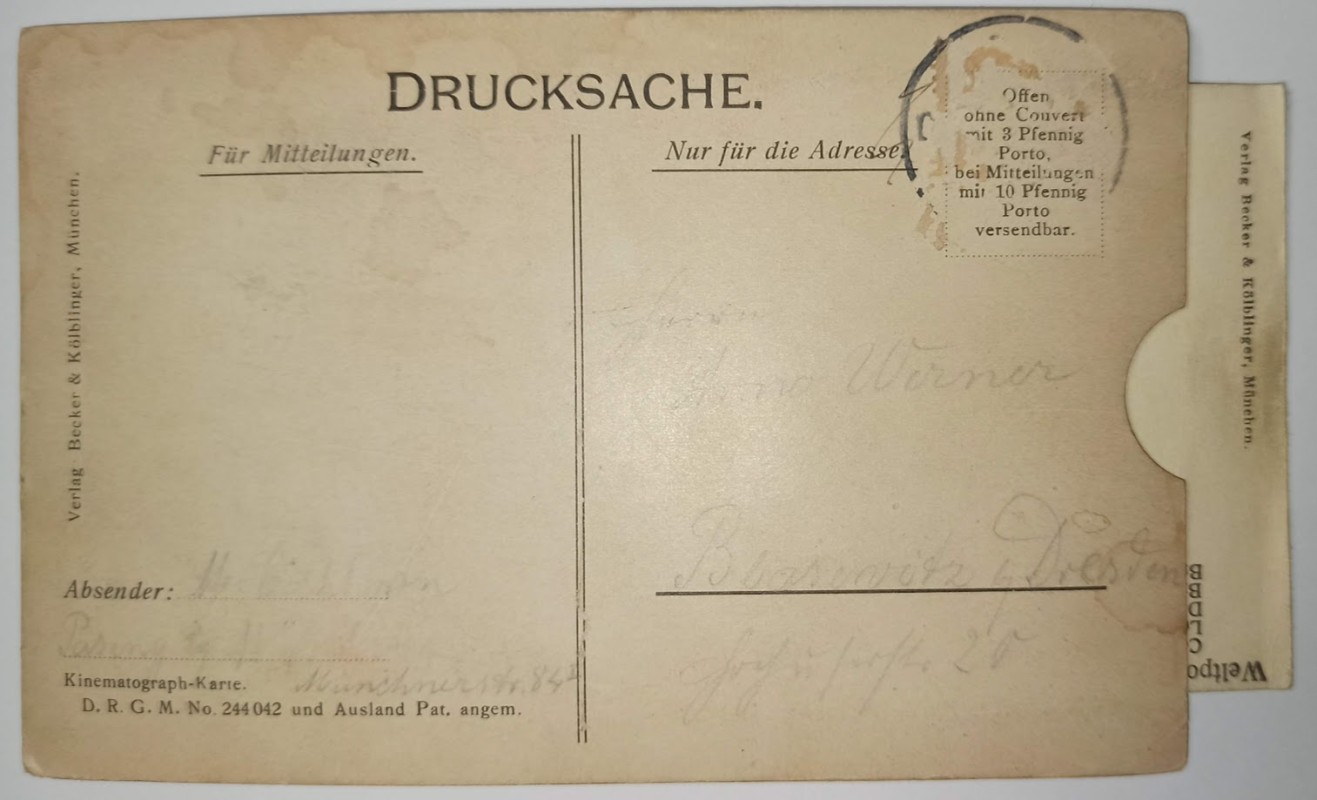 DRUCKSACHE.
Für Mitteilungen.
Nur für die Adresse.
Offen
ohne Couvert
mit 3 Pfennig
Porto,
bei Mitteilungen
mit 10 Pfennig
Porto
versendbar.
Verlag Becker & Kölblinger, München.
Verlag Becker & Kölblinger, München.
Werner
Blasewitz Dresden
20
Absender:
Münchnerstr. 84
Kinematograph-Karte.
D. R. G. M. No. 244042 und Ausland Pat. angem.
Weltpo